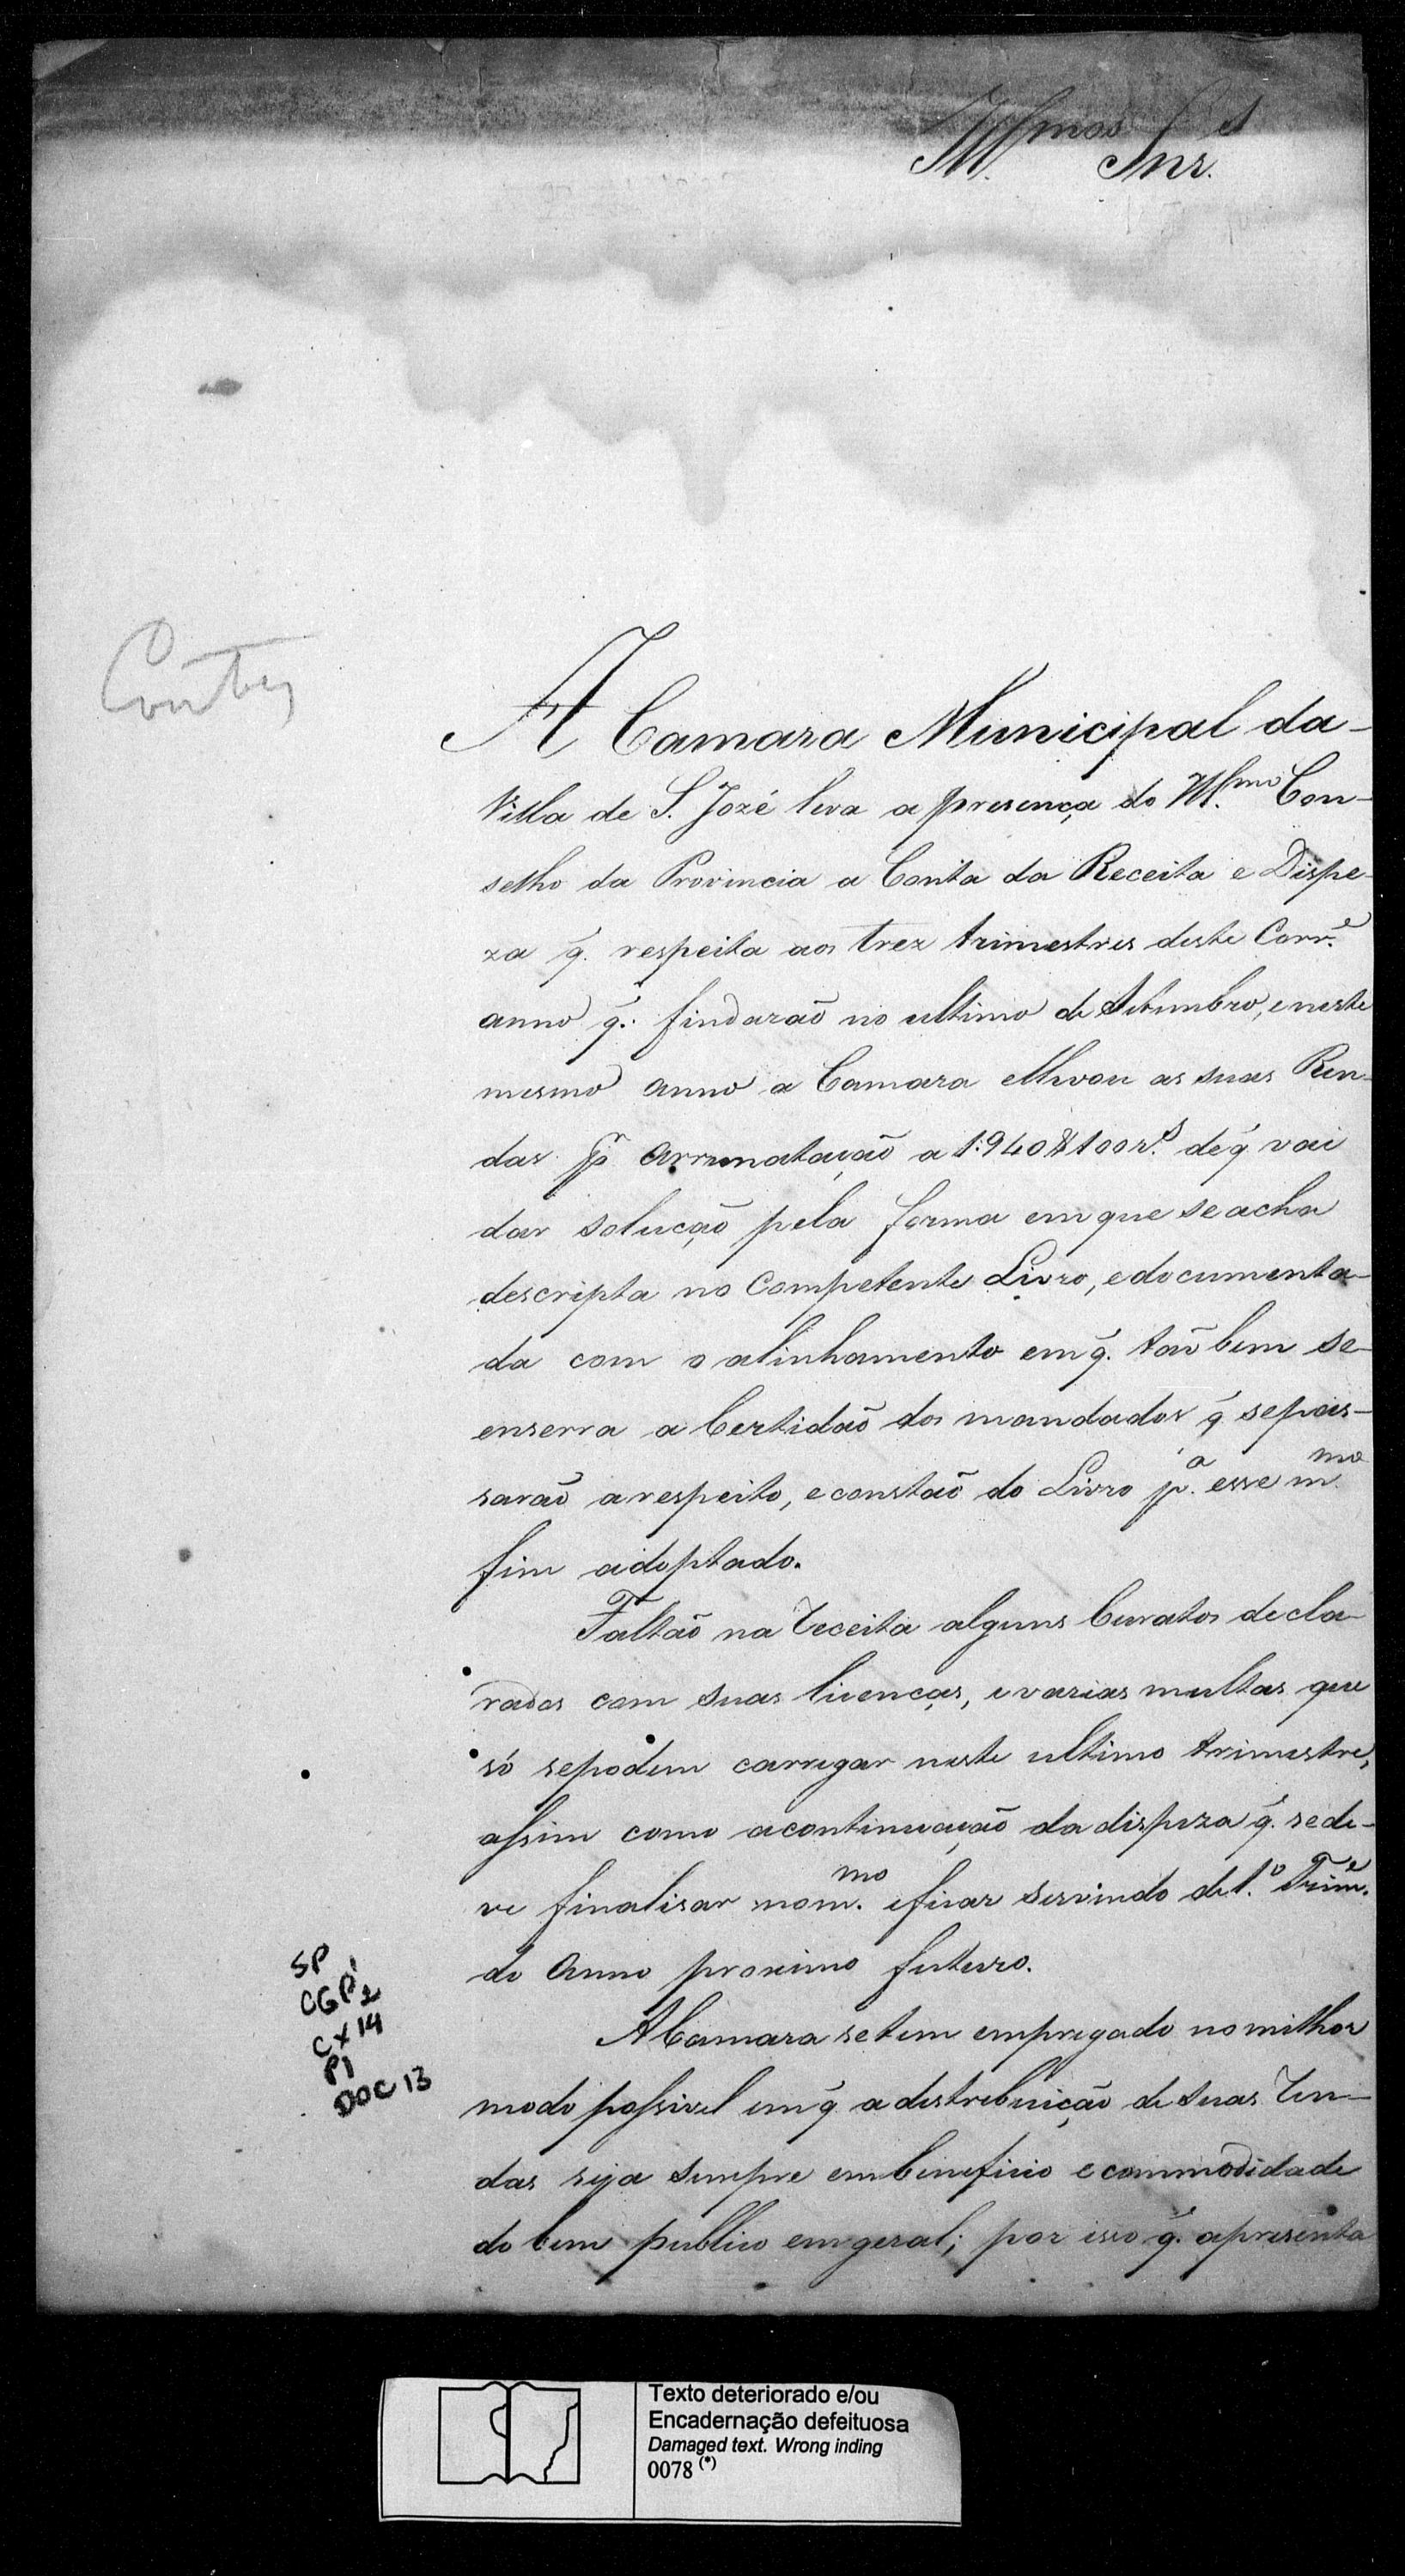 Ill.mos Snr.es
Contas
A Camara Municipal da-
Villa de S. Jozé leva a presença do Ill.mo Con-
selho da Provincia a Conta da Receita e Dispe-
za q̃. respeita aos trez trimestres deste Corr.e
anno q̃. findarão no ultimo de Setembro, e neste
mesmo anno a Camara ellevou as suas Ren-
das pr arrematação a 1:940$100 r.s de q̃ vai
dar solução pela forma em que se acha
descripta no Competente Livro, e documenta-
da com o alinhamento em q̃. tão bem se-
enserra a Certidão dos mandados q̃ se pas-
sarão a respeito, e constão do Livro p.a esse m.mo
fim adoptado.
Faltão na receita alguns Curatos decla-
rados com suas licenças, e varias multas que
só se podem carregar neste ultimo trimestre,
assim como a continuação da dispeza q̃. se de-
ve finalisar no m.mo e ficar servindo de 1.o Trim.e
do anno proximo futuro.
A Camara se tem empregado no milhor
modo possivel em q̃ a destrebuição de suas ren-
das seja sempre em beneficio e commodidade
do bem publico em geral; por isso q̃. apresenta
SP
CGP1
CX 14
P1
DOC 13
Texto deteriorado e/ou
Encadernação defeituosa
Damaged text. Wrong inding
0078 (*)